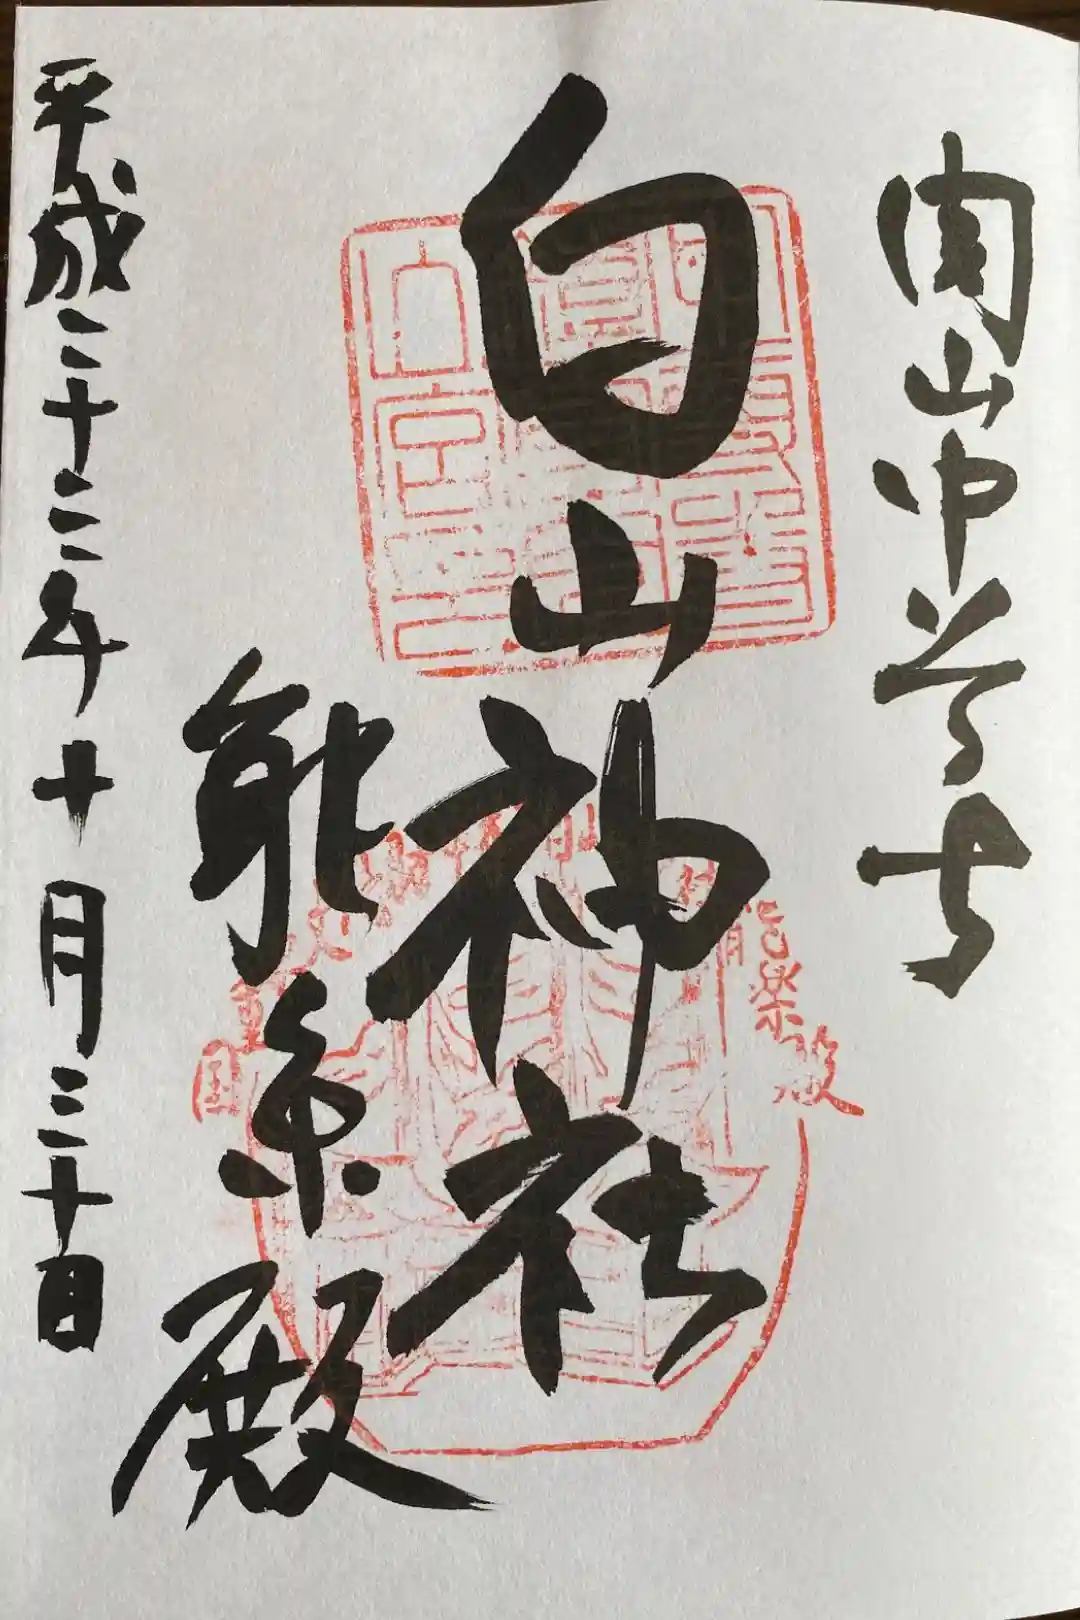 関山中尊寺
白山神社
能楽殿
平成二十二年十月三十日
能楽殿